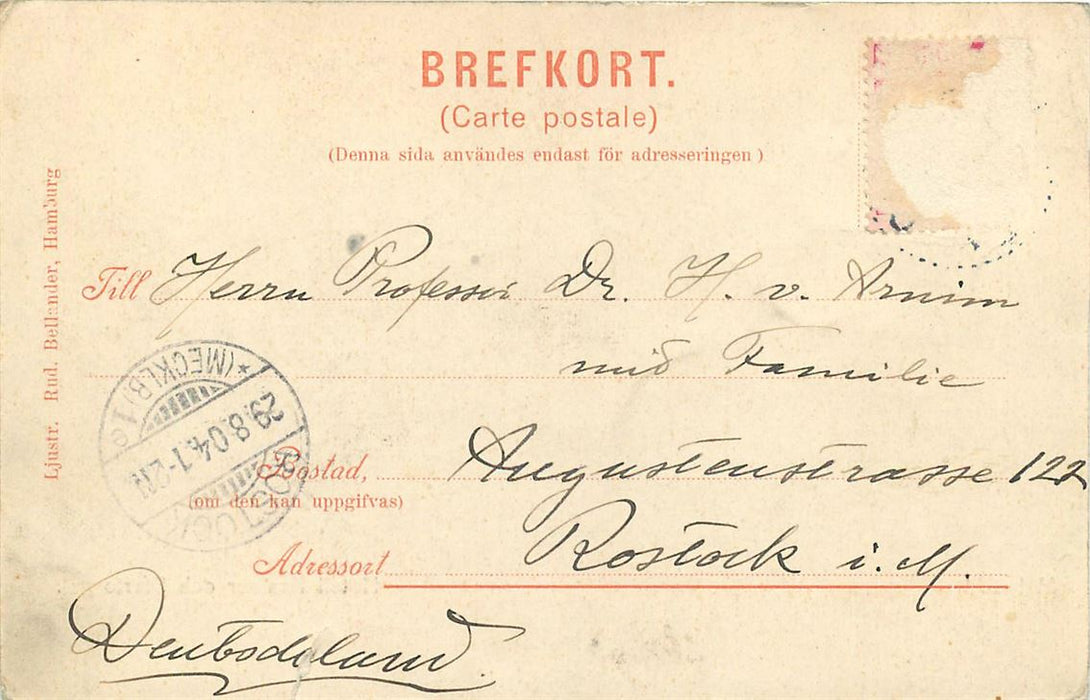 BREFKORT.
(Carte postale)
(Denna sida användes endast för adresseringen)
Ljustr. Rud. Bellander, Hamburg
Till Herrn Professor Dr. H. v. Arnim
mit Familie
Bostad, Augustenstrasse 122
(om den kan uppgifvas)
Adressort Rostock i. M.
Deutschland
ROSTOCK
29.8.04.1-2N.
* (MECKLB) 1